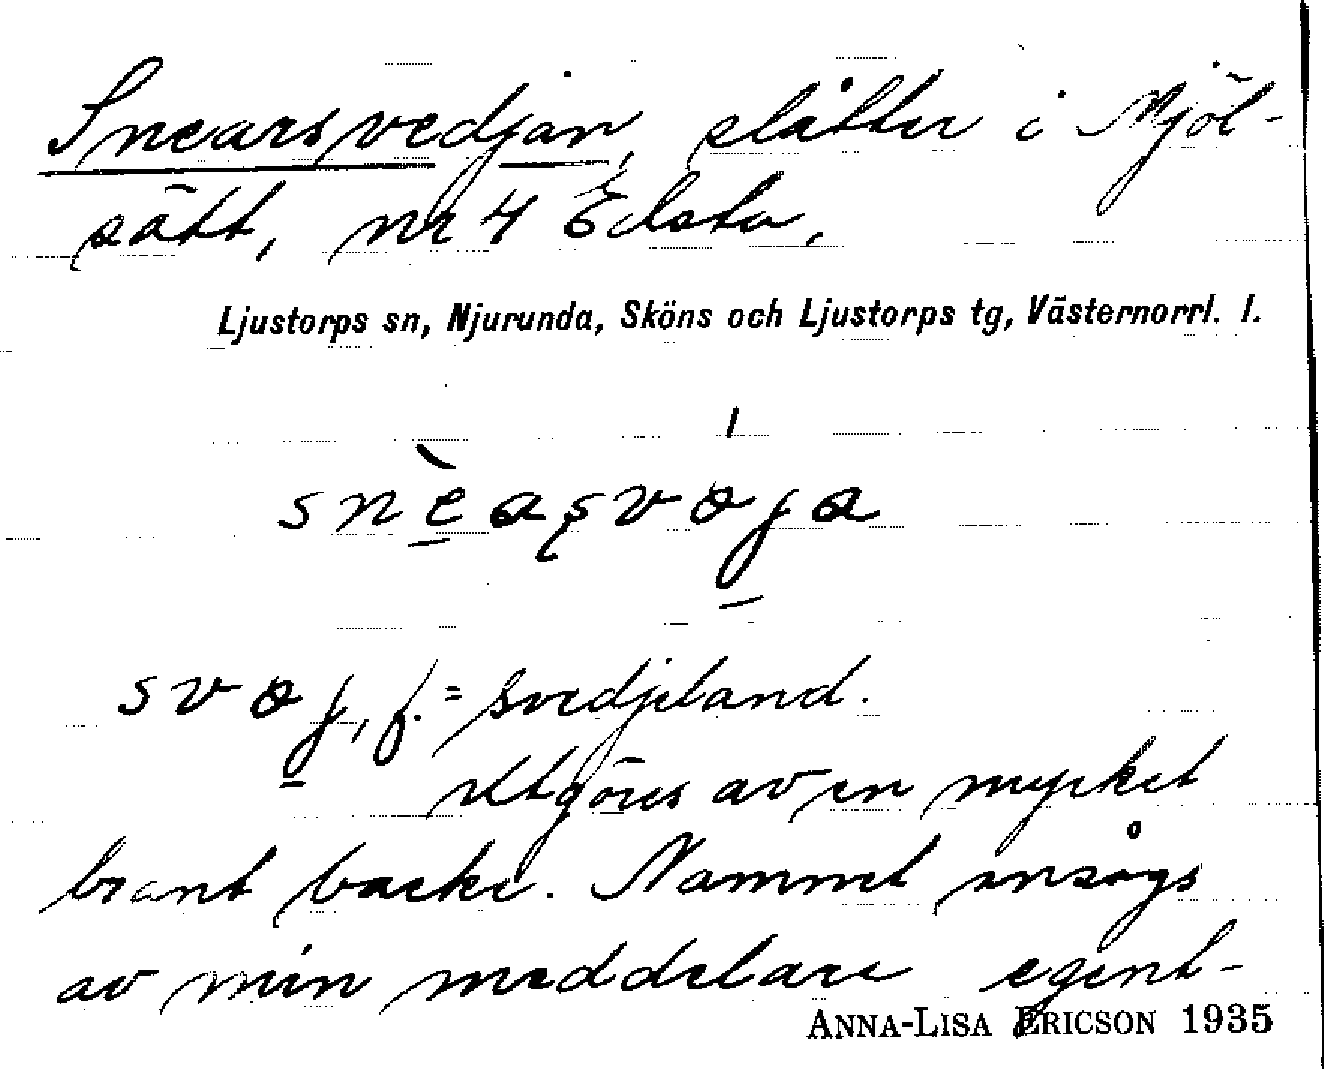 Snearsvedjan, slåtter i Mjöl-
sätt, nr 4 Edsta,
Ljustorps sn, Njurunda, Sköns och Ljustorps tg, Västernorrl. l.
snèasvaja
svaj, f. = svedjeland.
Utgöres av en mycket
brant backe. Namnet ansågs
av min meddelare egent-
ANNA-LISA ERICSON 1935